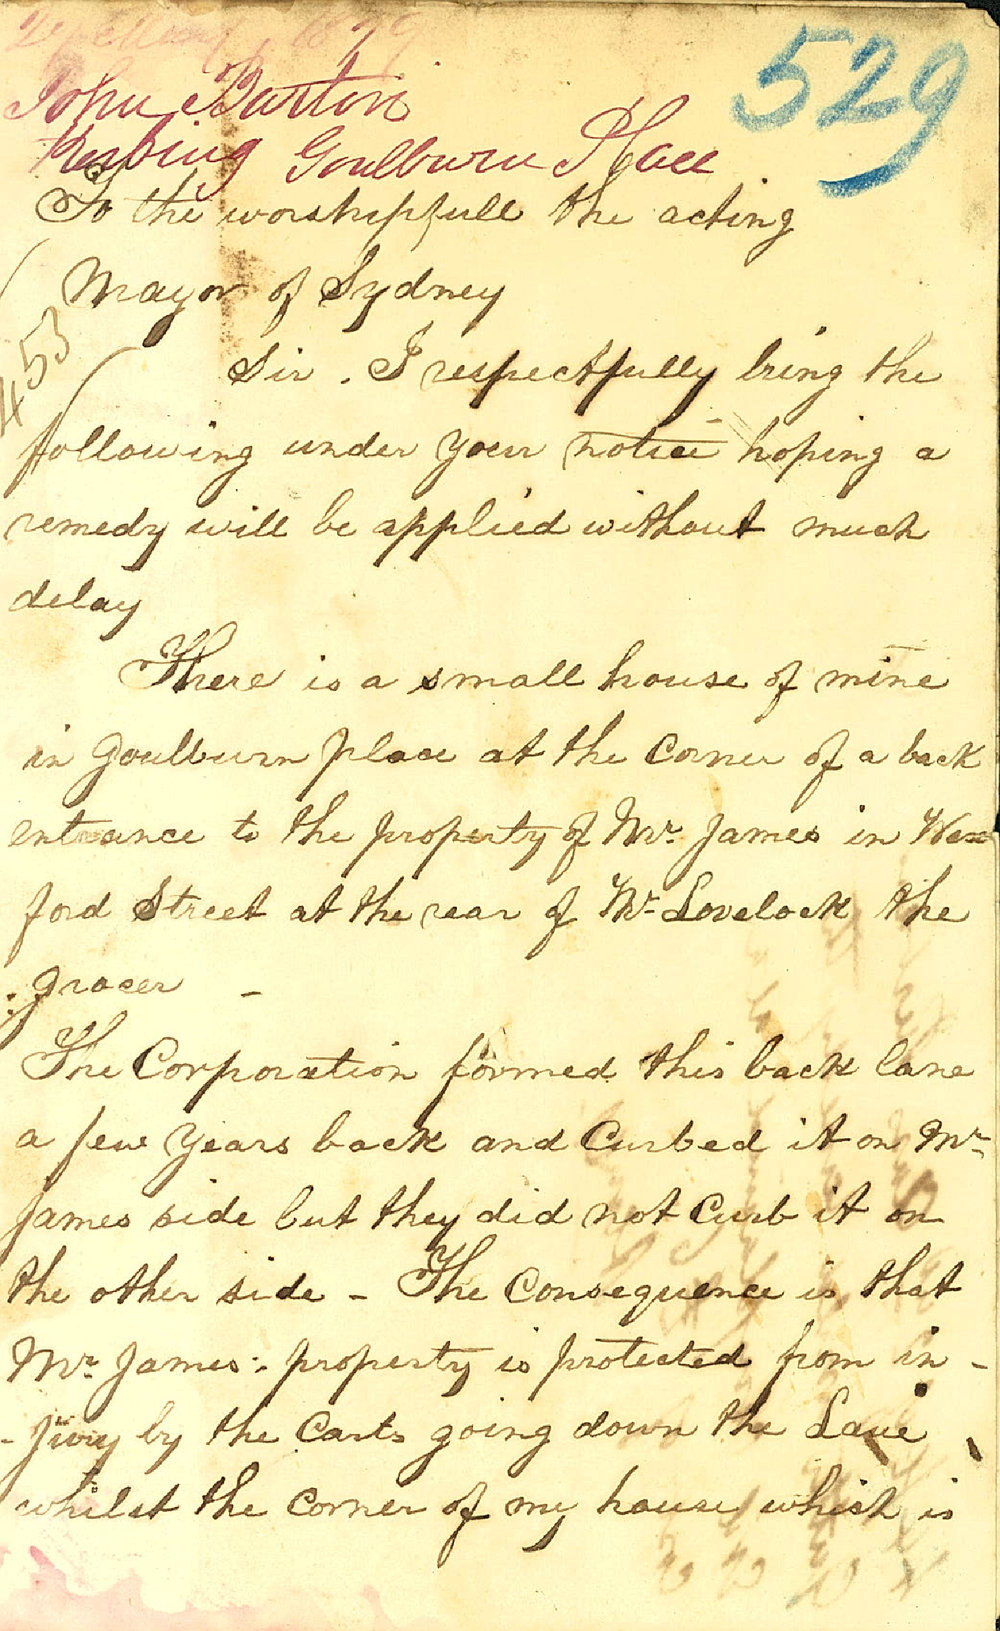 529
1879
John Barton
Kerbing Goulburn Place
To the worshipfull the acting
Mayor of Sydney
453
Sir. I respectfully bring the
following under your notice hoping a
remedy will be applied without much
delay
There is a small house of mine
in Goulburn place at the Corner of a back
entrance to the property of Mr. James in Wex
ford Street at the rear of Mr. Lovelock the
grocer -
The Corporation formed this back lane
a few years back and Curbed it on Mr.
James side but they did not Curb it on
the other side - The Consequence is that
Mr. James: property is protected from in -
- jury by the Carts going down the Lane
whilst the Corner of my house which is